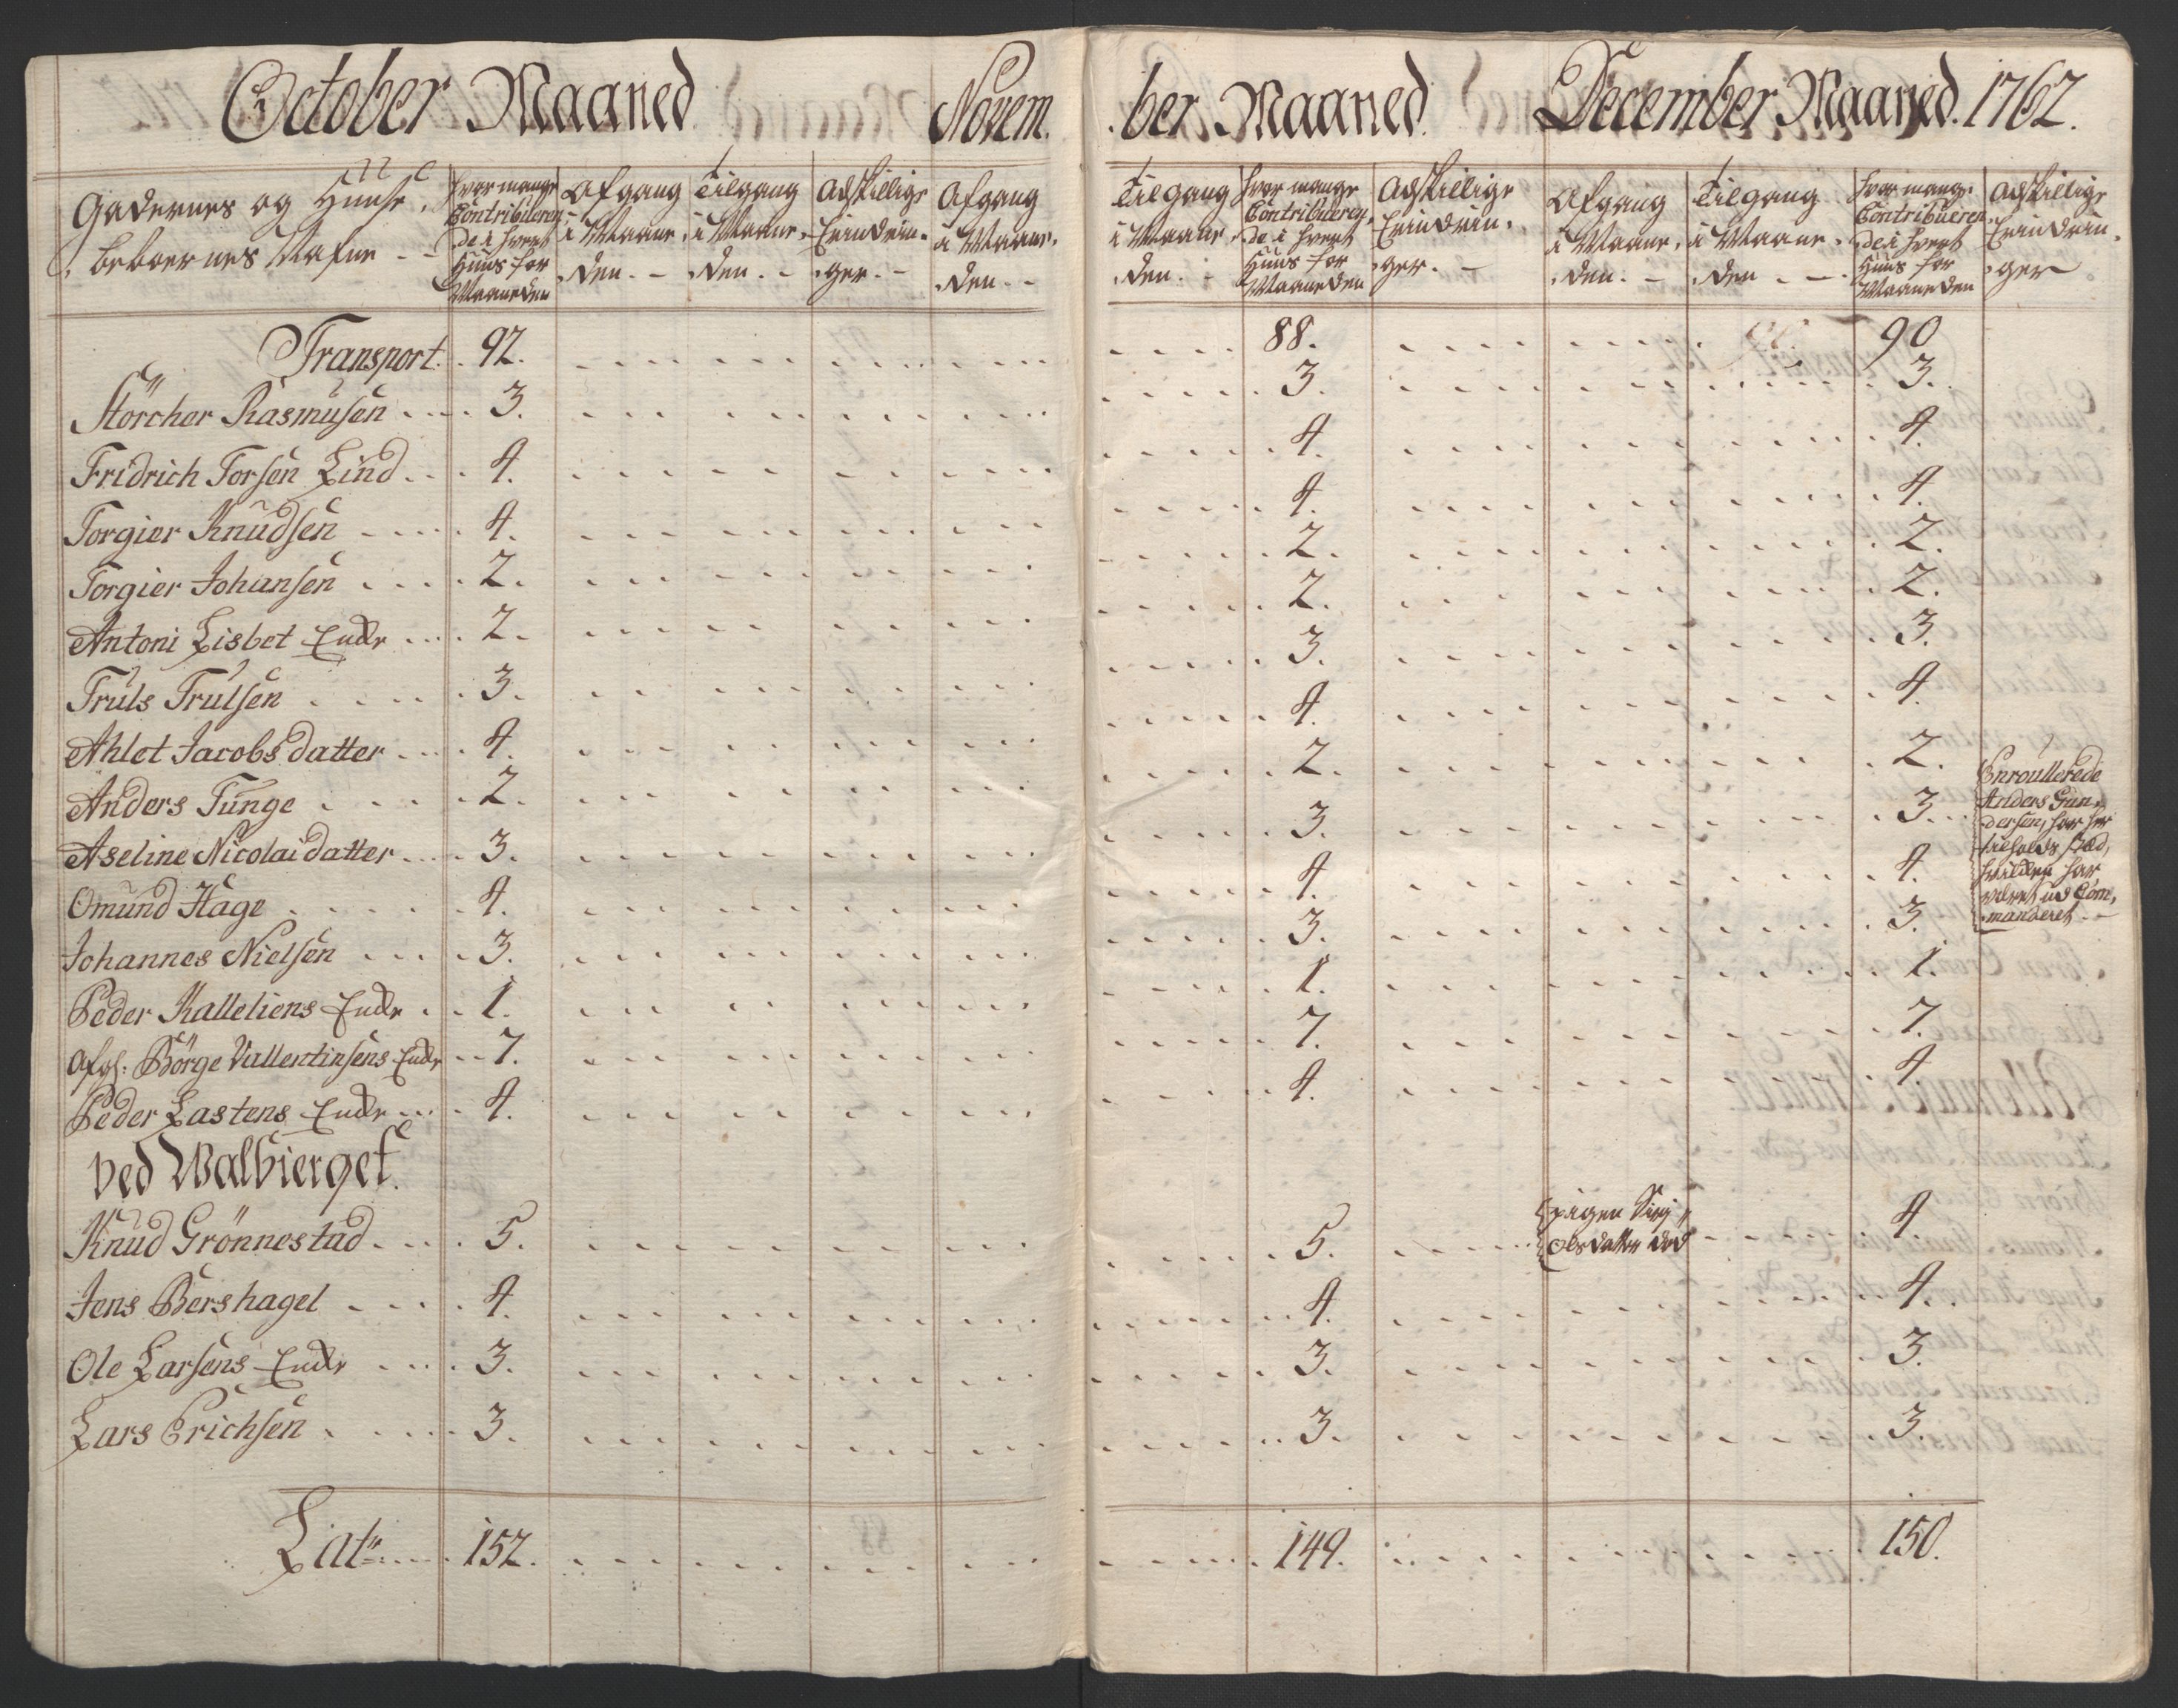 October Maaned Novem.
.ber Maaned. December Maaned. 1762.
Gadernes og Huuse,
beboernes Nafne - -
hvor mange Contribueren, de i hvert Huus for Maaneden
Afgang i Maane, den. -
Tilgang i Maane, den. -
Adskillige Erindrin, ger. -
Afgang i Maane, den. -
Tilgang i Maane, den. -
hvor mange Contribueren, de i hvert Huus for Maaneden
Adskillige Erindrin, ger. -
Afgang i Maane, den. -
Tilgang i Maane, den. -
hvor mange Contribueren, de i hvert Huus for Maaneden
Adskillige Erindrin, ger
Transport. 92. 88. 90
Störcher Rasmusen 3. 3. 3.
Fridrich Torsen Lind 4. 4. 4.
Torgier Knudsen 4. 4. 4.
Torgier Johansen 2. 2. 2.
Antoni Lisbet Enke 2. 2. 2.
Truls Trulsen 3. 3. 3.
Ahlet Jacobsdatter 4. 4. 4.
Anders Tunge 2. 2. 2.
Aseline Nicolaidatter 3. 3. 3.
Enroullerede
Anders Gun,
dersen, har her
tilholds stæd,
hvilken har
været ud Com,
manderet -
Omund Hage 4. 4. 4.
Johannes Nielsen 3. 3. 3.
Peder Kalleliens Enke 1. 1. 1.
Afg: Börge Vallentinsens Enke 7. 7. 7.
Peder Lastens Enke 4. 4. 4.
ved Walbierget.
Knud Grönnestad 5. 5. 4.
pigen Siri
Olsdatter død
Jens Bershagel 4. 4. 4.
Ole Larsens Enke 3. 3. 3.
Lars Erichsen 3. 3. 3.
Lat. 152. 149. 150.